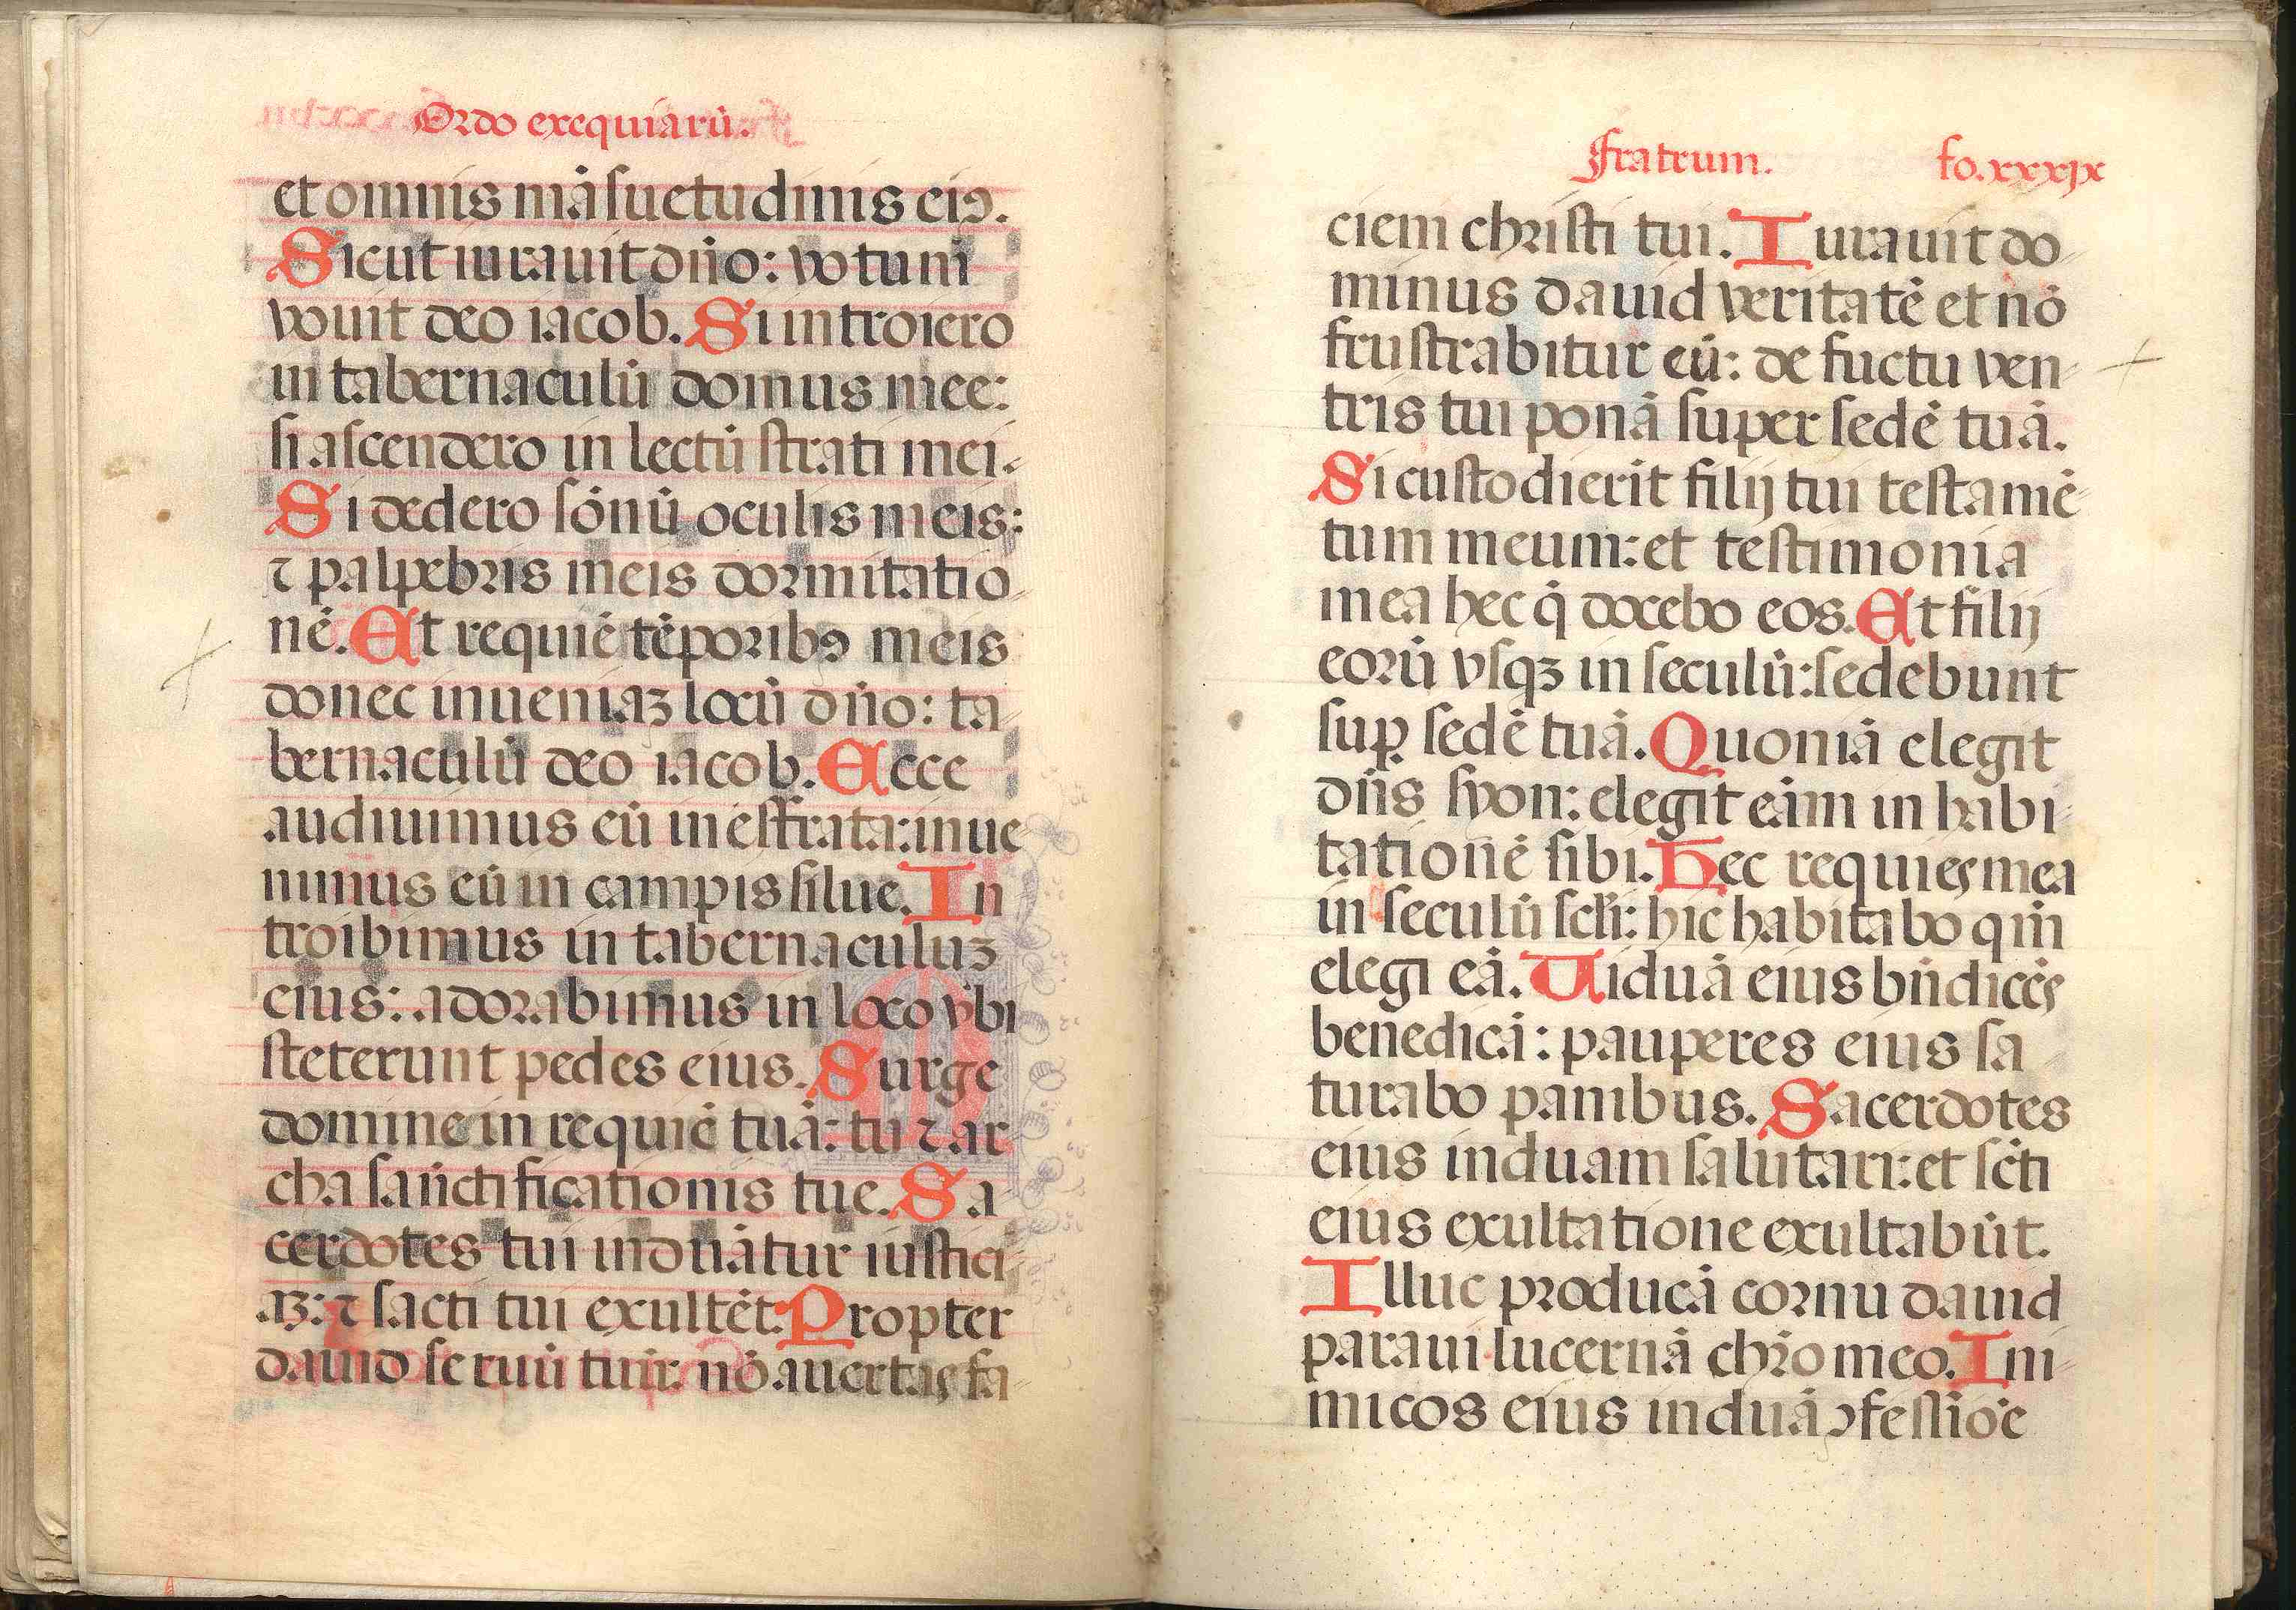 Ordo exequiarū.
et omnis māsuetudinis eiꝯ.
Sicut iurauit dño: votum
vouit deo iacob. Si introiero
in tabernaculū domus mee:
si ascendero in lectū strati mei.
Si dedero sōnū oculis meis:
⁊ palpebris meis dormitatio-
nē. Et requiē tēporibꝯ meis
donec inueniaꝫ locū dño: ta-
bernaculū deo iacob. Ecce
audiuimus eū in effrata: inue
nimus eū in campis silue. In
troibimus in tabernaculuꝫ
eius: adorabimus in loco vbi
steterunt pedes eius. Surge
domine in requiē tuā: tu ⁊ ar
cha sanctificationis tue. Sa-
cerdotes tui induātur iustici-
aꝫ: ⁊ sacti tui exultēt. Propter
dauid seruū tuū: nō auertas fa-
fratrum. fo. xxxix
ciem christi tui. Iurauit do-
minus dauid veritatē et nō
frustrabitur eū: de fuctu ven-
tris tui ponā super sedē tuā.
Si custodierit filij tui testamē-
tum meum: et testimonia
mea hec q̄ docebo eos. Et filij
eorū vsqꝫ in seculū: sedebunt
suꝑ sedē tuā. Quoniā elegit
dñs syon: elegit eam in habi-
tationē sibi. Hec requies mea
in seculū scl̄i: hic habitabo qm̄
elegi eā. Uiduā eius bñdicēs
benedicā: pauperes eius sa-
turabo panibus. Sacerdotes
eius induam salutari: et sc̄ti
eius exultatione exultabūt.
Illuc producā cornu dauid
paraui lucernā chr̄o meo. Ini-
micos eius induā ↄfessiōe